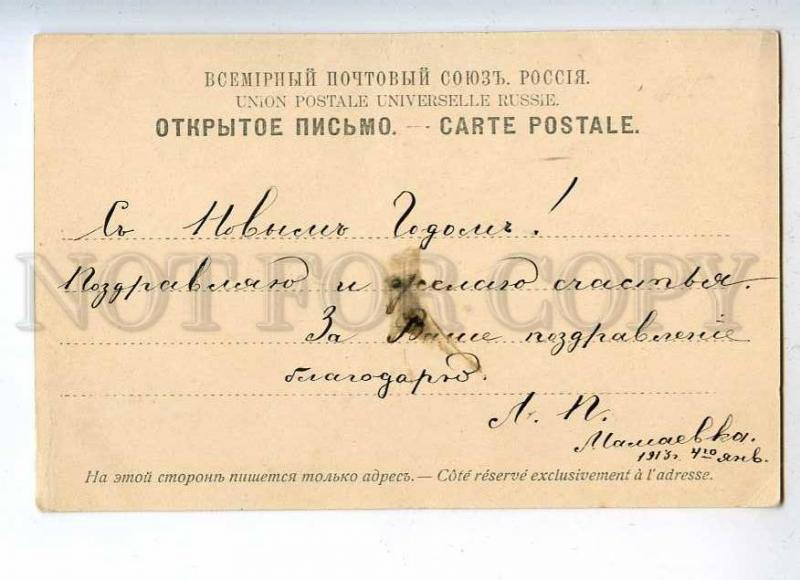 ВСЕМІРНЫЙ ПОЧТОВЫЙ СОЮЗЪ. РОССІЯ.
UNION POSTALE UNIVERSELLE RUSSIE.
ОТКРЫТОЕ ПИСЬМО. — CARTE POSTALE.
Съ Новымъ Годомъ!
Поздравляю и желаю счастья.
NOT FOR COPY
За Ваше поздравленіе
благодарю.
Л. П.
Мамаевка.
1913г. 4го янв.
На этой сторонѣ пишется только адресъ. — Côté réservé exclusivement à l'adresse.